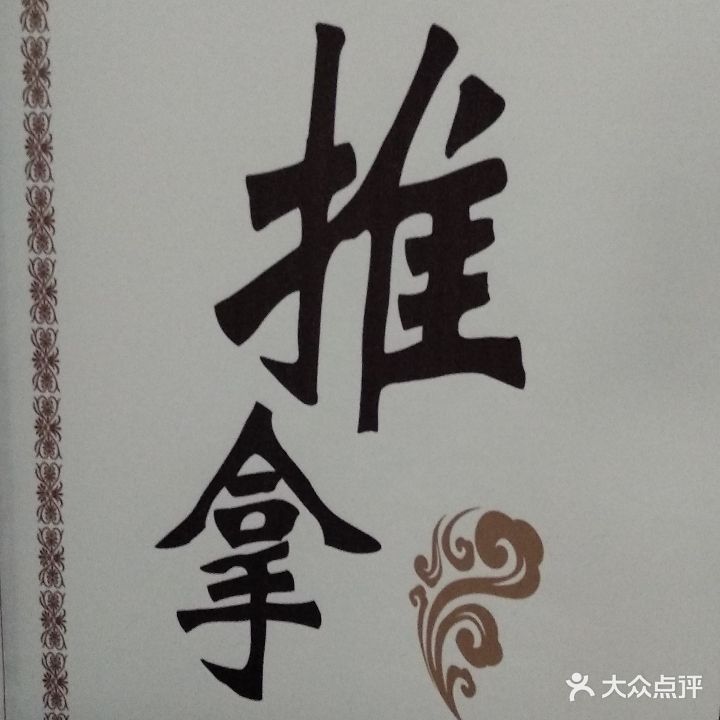 推
拿
大众点评